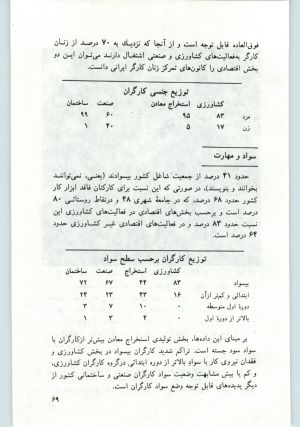 فوق‌العاده قابل توجه است و از آنجا که نزدیک به ۷۰ درصد از زنان
کارگر به‌فعالیت‌های کشاورزی و صنعتی اشتغال دارند می‌توان این دو
بخش اقتصادی را کانون‌های تمرکز زنان کارگر ایرانی دانست.
توزیع جنسی کارگران
کشاورزی استخراج معادن صنعت ساختمان
مرد ۸۳ ۹۵ ۶۰ ۹۹
زن ۱۷ ۵ ۴۰ ۱
سواد و مهارت
حدود ۴۱ درصد از جمعیت شاغل کشور بیسوادند (یعنی، نمی‌توانند
بخوانند و بنویسند)، در صورتی که این نسبت برای کارکنان فاقد ابزار کار
حدود ۶۸ درصد، که در جامعهٔ شهری ۴۸ و درنقاط روستائی ۸۰
درصد است و برحسب بخش‌های اقتصادی در فعالیت‌های کشاورزی این
نسبت حدود ۸۳ درصد و در فعالیت‌های اقتصادی غیر کشاورزی حدود
۶۴ درصد است.
توزیع کارگران برحسب سطح سواد
کشاورزی استخراج صنعت ساختمان
بیسواد ۸۳ ۴۴ ۶۷ ۷۲
ابتدائی و کم‌تر ازآن ۱۶ ۴۳ ۲۳ ۲۴
دورهٔ اول متوسطه ۰ ۱۰ ۷ ۳
بالاتر از دورهٔ اول ۰ ۴ ۳ ۱
بر مبنای این داده‌ها، بخش تولیدی استخراج معادن بیش‌تر ازکارگران با
سواد سود جسته است. تراکم شدید کارگران بیسواد در بخش کشاورزی و
فقدان نیروی کار با سواد بالاتر از دوره ابتدائی درگروه کارگران کشاورزی،
و کم یا بیش مشابهت وضعیت سواد کارگران صنعتی و ساختمانی کشور از
دیگر پدیده‌های قابل توجه وضع سواد کارگران است.
۶۹